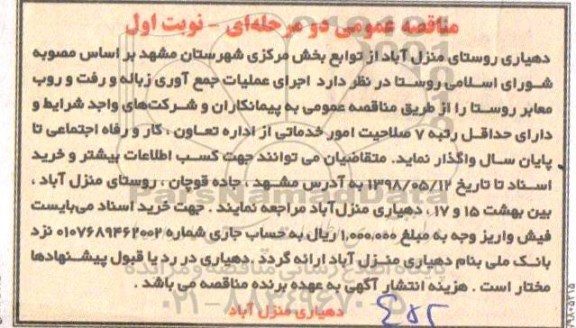 مناقصه عمومی دو مرحله‌ای - نوبت اول
دهیاری روستای منزل آباد از توابع بخش مرکزی شهرستان مشهد بر اساس مصوبه
شورای اسلامی روستا در نظر دارد اجرای عملیات جمع آوری زباله و رفت و روب
معابر روستا را از طریق مناقصه عمومی به پیمانکاران و شرکت‌های واجد شرایط و
دارای حداقل رتبه ۷ صلاحیت امور خدماتی از اداره تعاون ، کار و رفاه اجتماعی تا
پایان سال واگذار نماید. متقاضیان می توانند جهت کسب اطلاعات بیشتر و خرید
اسناد تا تاریخ ۱۳۹۸/۰۵/۱۲ به آدرس مشهد ، جاده قوچان ، روستای منزل آباد ،
بین بهشت ۱۵ و ۱۷ ، دهیاری منزل آباد مراجعه نمایند . جهت خرید اسناد می‌بایست
فیش واریز وجه به مبلغ ۱,۰۰۰,۰۰۰ ریال به حساب جاری شماره ۰۱۰۷۶۸۹۴۶۲۰۰۲ نزد
بانک ملی بنام دهیاری منزل آباد ارائه گردد .دهیاری در رد یا قبول پیشنهادها
مختار است . هزینه انتشار آگهی به عهده برنده مناقصه می باشد .
دهیاری منزل آباد
ParsNamadData
پایگاه اطلاع رسانی مناقصه و مزایده
۰۲۱-۸۸۳۴۹۶۷۰